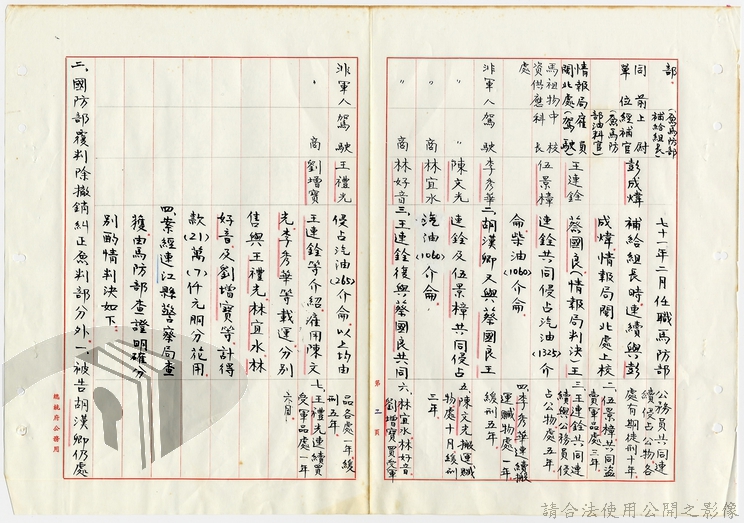 部。(兼馬防部補給組長)
同前上尉 彭成煒
單位經補官(兼馬防部油料官)
情報局雇員 王連銓
閩北處(駕駛)
馬祖物中校 伍景樟
資供應科長
處
非軍人駕駛 李秀華
〃 〃 陳文光
〃 商 林宜水
〃 商 林好音
七十一年二月任職馬防部
補給組長時連續與彭
成煒情報局閩北處上校
蔡國良(情報局判決)王
連銓共同侵占汽油(1325)介
侖柴油(1060)介侖。
二、胡漢卿又與蔡國良王
連銓及伍景樟共同侵占
汽油(1060)介侖。
三、王連銓復與蔡國良共同
公務員共同連
續侵占公物各
處有期徒刑十年
二、伍景樟共同盜
賣軍品處三年
三、王連銓共同連
續與公務員侵
占公物處五年
緩刑五年
四、李秀華連續搬
運贓物處一年
五、陳文光搬運贓
物處十月緩刑
三年。
六、林宜水林好音
劉增寶買受軍
第二頁
非軍人駕駛 王禮光
〃 商 劉增寶
侵占汽油(265)介侖。以上均由
王連銓等介紹雇用陳文
光李秀華等載運分別
售與王禮光、林宜水、林
好音及劉增寶等計得
款(21)萬(7)仟元朋分花用
四、案經連江縣警察局查
獲由馬防部查證明確分
別酌情判決如下。
品各處一年,緩
刑五年
七、王禮光連續買
受軍品處一年
六月。
三、國防部覆判除撤銷糾正原判部分外一、被告胡漢卿仍處
總統府公務用
請合法使用公開之影像